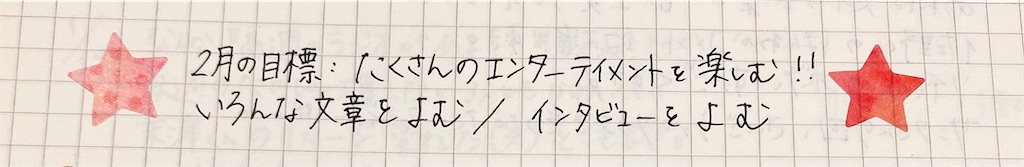 2月の目標：たくさんのエンターテイメントを楽しむ!!
いろんな文章をよむ / インタビューをよむ